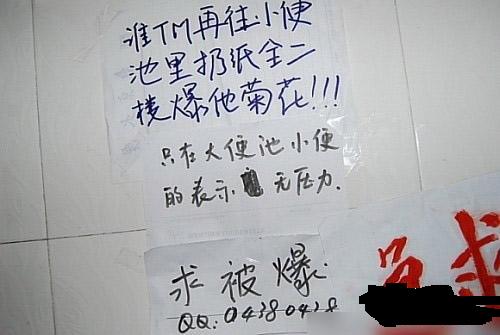 谁TM再往小便
池里扔纸全二
楼爆他菊花!!!
只在大便池小便
的表示 无压力.
求被爆.
QQ:04380438
求